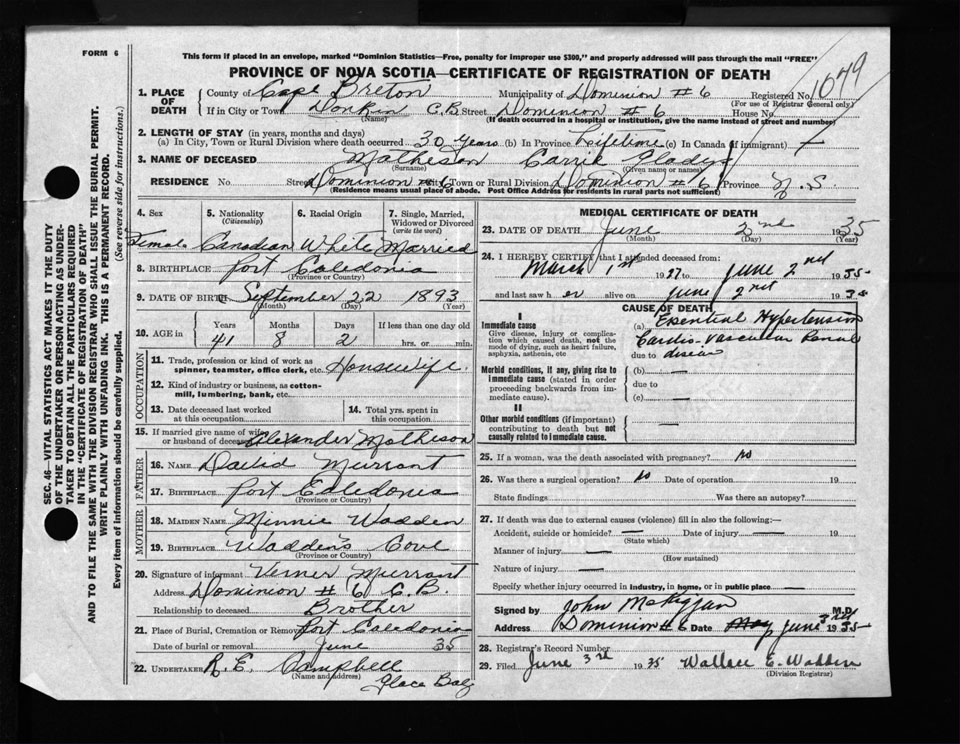 FORM 6
This form if placed in an envelope, marked "Dominion Statistics—Free, penalty for improper use $300," and properly addressed will pass through the mail "FREE"
PROVINCE OF NOVA SCOTIA—CERTIFICATE OF REGISTRATION OF DEATH
1. PLACE OF DEATH
County of Cape Breton Municipality of Dominion # 6 Registered No. 1079
(For use of Registrar General only)
If in City or Town Donkin C.B. Street Dominion # 6 House No.
(Name) (If death occurred in a hospital or institution, give the name instead of street and number)
2. LENGTH OF STAY (in years, months and days)
(a) In City, Town or Rural Division where death occurred 30 years (b) In Province Lifetime (c) In Canada (if immigrant)
3. NAME OF DECEASED Matheson Carrie Gladys
(Surname) (Given name or names)
RESIDENCE No. Street Dominion # 6 Town or Rural Division Dominion # 6 Province N.S.
(Residence means usual place of abode. Post Office Address for residents in rural parts not sufficient)
4. Sex 5. Nationality (Citizenship) 6. Racial Origin 7. Single, Married, Widowed or Divorced (write the word)
Female Canadian White Married
8. BIRTHPLACE Port Caledonia
(Province or Country)
9. DATE OF BIRTH September 22 1893
(Month) (Day) (Year)
10. AGE in Years Months Days If less than one day old
41 8 2 hrs. or min.
OCCUPATION
11. Trade, profession or kind of work as spinner, teamster, office clerk, etc. Housewife
12. Kind of industry or business, as cotton-mill, lumbering, bank, etc.
13. Date deceased last worked at this occupation 14. Total yrs. spent in this occupation
15. If married give name of wife or husband of deceased Alexander Matheson
FATHER
16. NAME David Murrant
17. BIRTHPLACE Port Caledonia
(Province or Country)
MOTHER
18. MAIDEN NAME Minnie Wadden
19. BIRTHPLACE Wadden's Cove
(Province or Country)
20. Signature of informant Verner Murrant
Address Dominion # 6 C.B.
Relationship to deceased Brother
21. Place of Burial, Cremation or Removal Port Caledonia
Date of burial or removal June 35
22. UNDERTAKER R. E. Campbell
(Name and address)
Glace Bay
MEDICAL CERTIFICATE OF DEATH
23. DATE OF DEATH June 2nd 1935
(Month) (Day) (Year)
24. I HEREBY CERTIFY that I attended deceased from:
March 1st 1927 to June 2nd 1935
and last saw her alive on June 2nd 1935
CAUSE OF DEATH
I
Immediate cause
Give disease, injury or complication which caused death, not the mode of dying, such as heart failure, asphyxia, asthenia, etc
(a) Essential Hypertension
Cardio-Vascular Renal
due to disease
Morbid conditions, if any, giving rise to immediate cause (stated in order proceeding backwards from immediate cause).
(b) —
due to
(c) —
II
Other morbid conditions (if important) contributing to death but not causally related to immediate cause.
—
25. If a woman, was the death associated with pregnancy? No
26. Was there a surgical operation? No Date of operation 19
State findings Was there an autopsy?
27. If death was due to external causes (violence) fill in also the following:—
Accident, suicide or homicide? — Date of injury — 19
(State which)
Manner of injury —
(How sustained)
Nature of injury —
Specify whether injury occurred in industry, in home, or in public place —
Signed by John McKiggan M.D.
Address Dominion # 6 Date May June 3rd 1935
28. Registrar's Record Number
29. Filed June 3rd 1935 Wallace E. Wadden
(Division Registrar)
SEC. 46—VITAL STATISTICS ACT MAKES IT THE DUTY
OF THE UNDERTAKER OR PERSON ACTING AS UNDER-
TAKER TO OBTAIN ALL THE PARTICULARS REQUIRED
IN THE "CERTIFICATE OF REGISTRATION OF DEATH"
AND TO FILE THE SAME WITH THE DIVISION REGISTRAR WHO SHALL ISSUE THE BURIAL PERMIT.
WRITE PLAINLY WITH UNFADING INK. THIS IS A PERMANENT RECORD.
Every item of information should be carefully supplied. (See reverse side for instructions.)